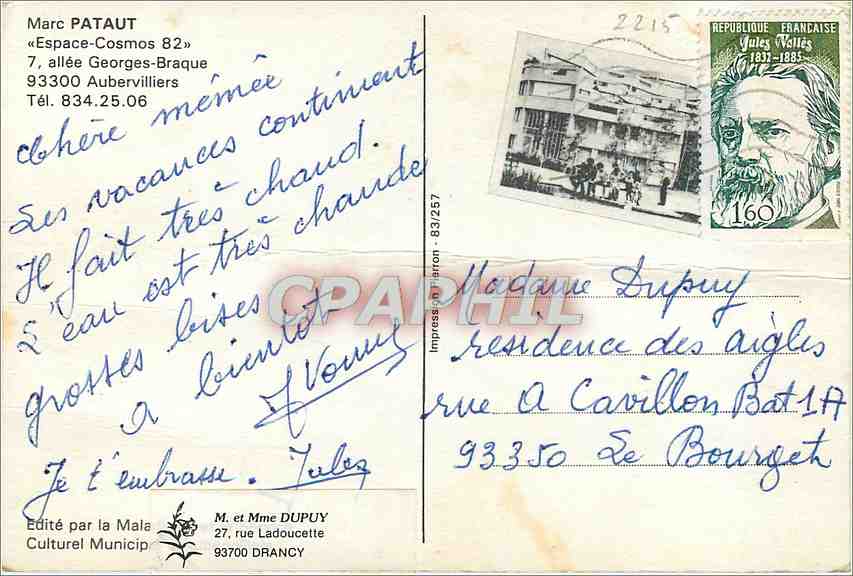 Marc PATAUT
«Espace-Cosmos 82»
7, allée Georges-Braque
93300 Aubervilliers
Tél. 834.25.06
chère mémée
Les vacances continuent
Il fait très chaud.
L'eau est très chaude
grosses bises
a bientôt
Yvonne
Je t'embrasse. Jules
Edité par la Mala
Culturel Municip
M. et Mme DUPUY
27, rue Ladoucette
93700 DRANCY
Impression Pierron - 83/257
CPAPHIL
2215
REPUBLIQUE FRANÇAISE
Jules Vallès
1832-1885
1,60
Madame Dupuy
residence des aigles
rue A Cavillon Bat 1A
93350 Le Bourget